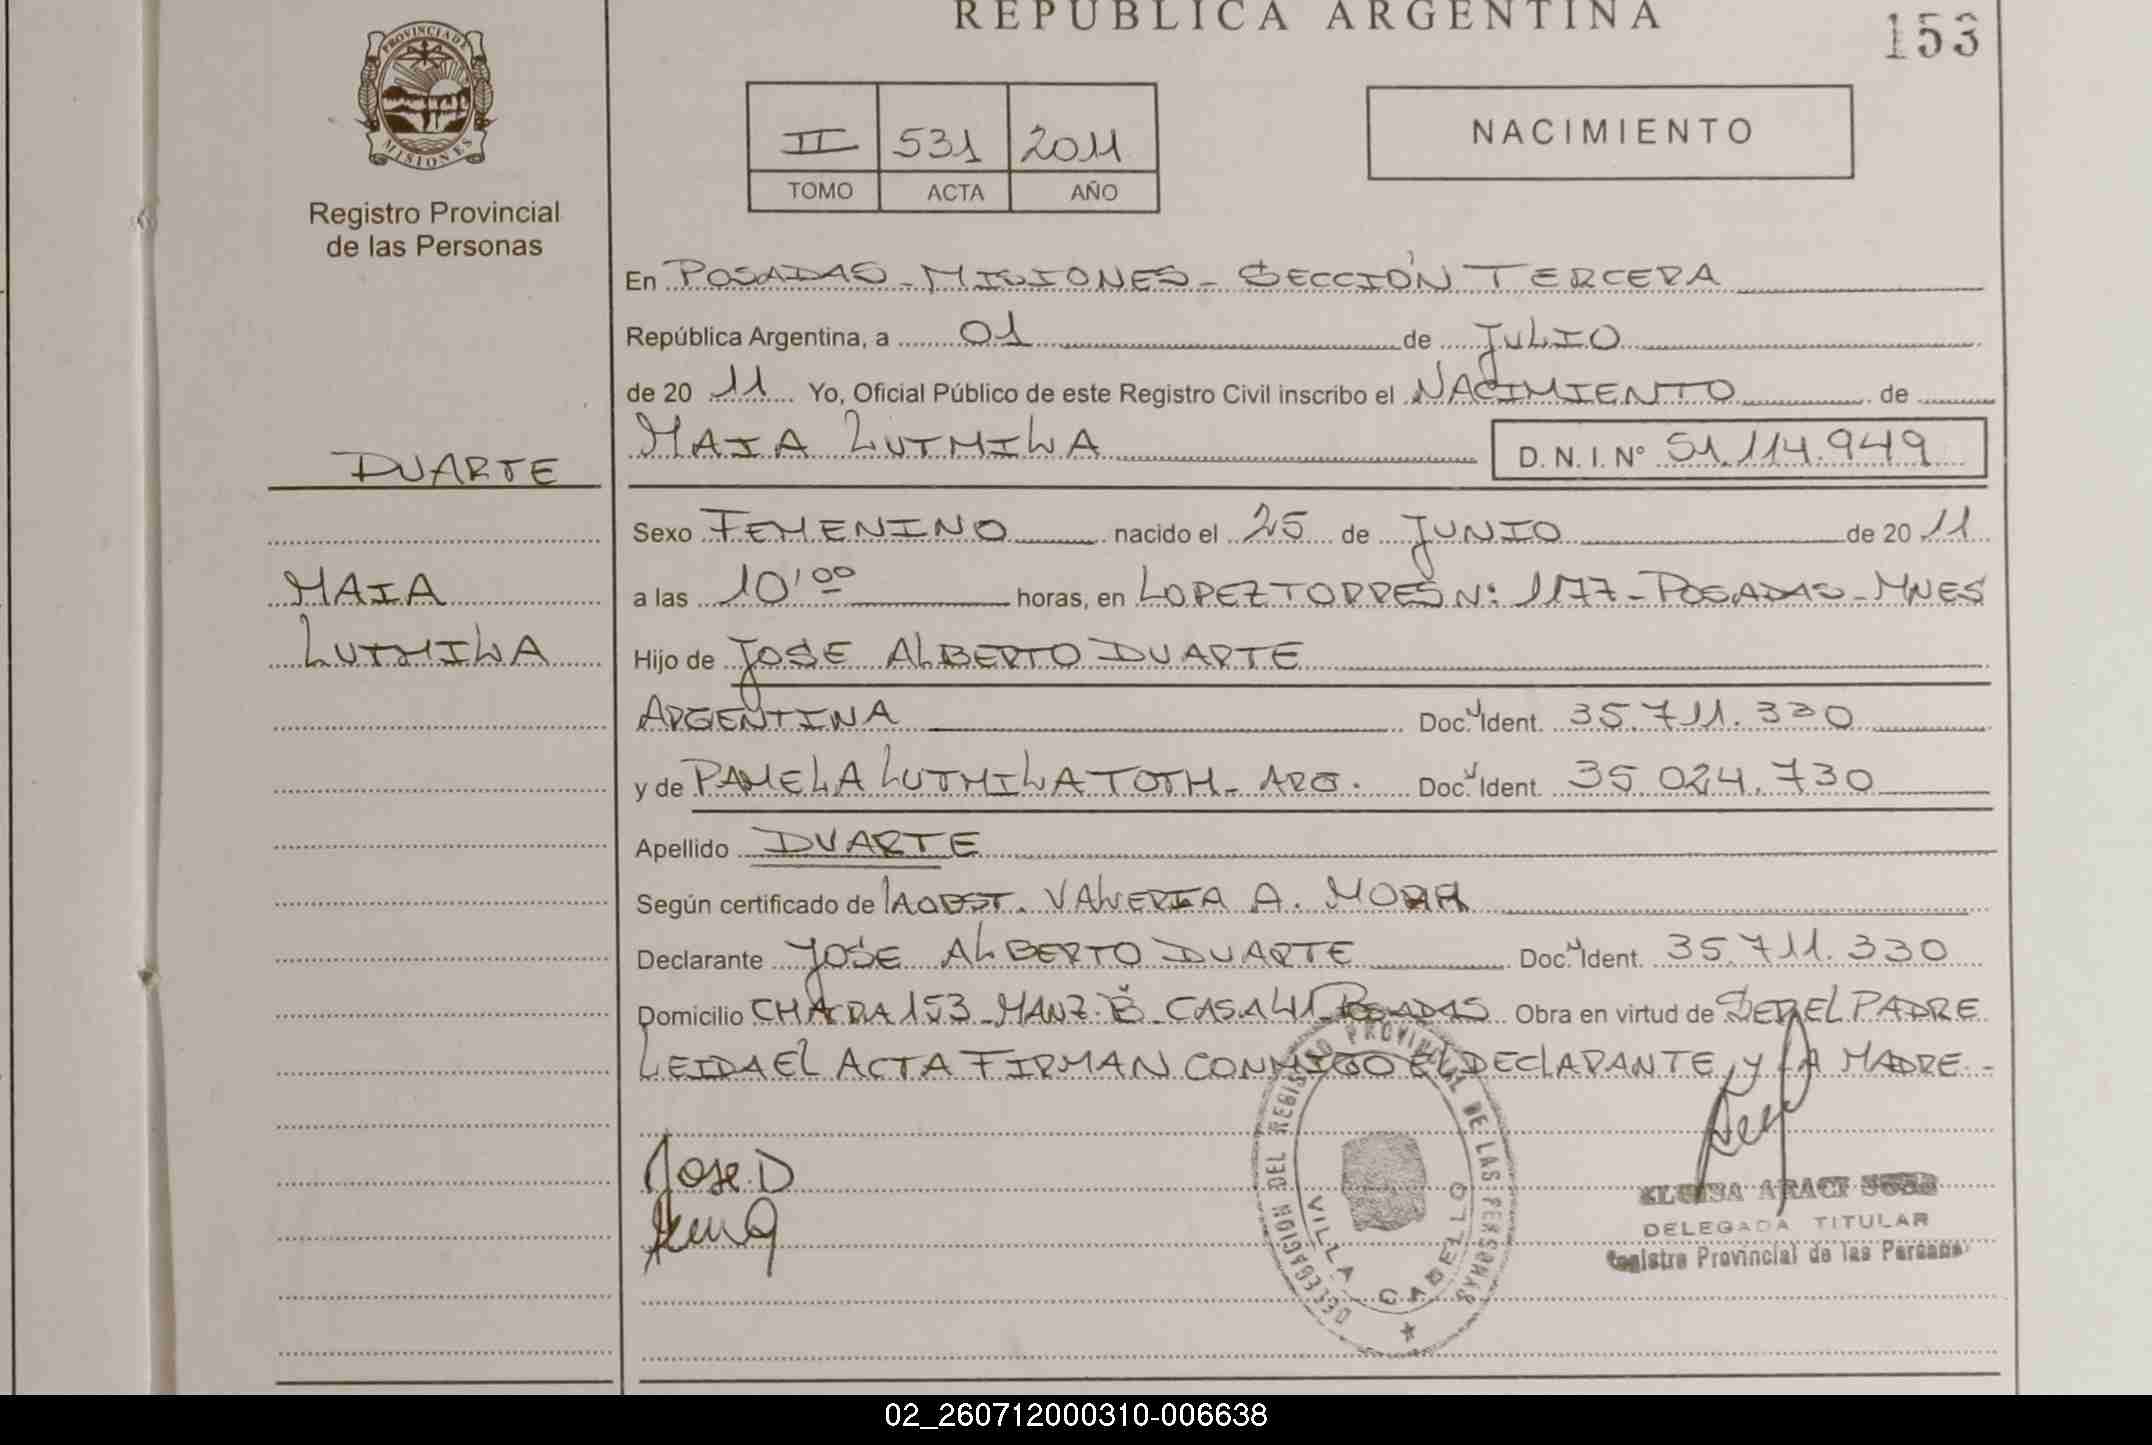 REPUBLICA ARGENTINA
153
PROVINCIA DE
MISIONES
Registro Provincial
de las Personas
II 531 2011
TOMO ACTA AÑO
NACIMIENTO
En POSADAS - MISIONES - SECCIÓN TERCERA
República Argentina, a 01 de JULIO
de 20 11 Yo, Oficial Público de este Registro Civil inscribo el NACIMIENTO de
MAIA LUTMILA D.N.I. N° 51.114.949
DUARTE
Sexo FEMENINO nacido el 25 de JUNIO de 20 11
MAIA
a las 10'00 horas, en LOPEZ TORRES N: 1177 - POSADAS - MNES
LUTMILA
Hijo de JOSE ALBERTO DUARTE
ARGENTINA Doc. Ident. 35.711.330
y de PAMELA LUTMILA TOTH - ARG. Doc. Ident. 35.024.730
Apellido DUARTE
Según certificado de VALERIA A. MORA
Declarante JOSE ALBERTO DUARTE Doc. Ident. 35.711.330
Domicilio CHACRA 153 - MANZ. B - CASA 41 POSADAS Obra en virtud de SER EL PADRE
LEIDA EL ACTA FIRMAN CONMIGO EL DECLARANTE Y LA MADRE -
Jose D
DELEGACION DEL REGISTRO PROVINCIAL DE LAS PERSONAS
VILLA CABELLO
DELEGADA TITULAR
Registro Provincial de las Personas
02_260712000310-006638